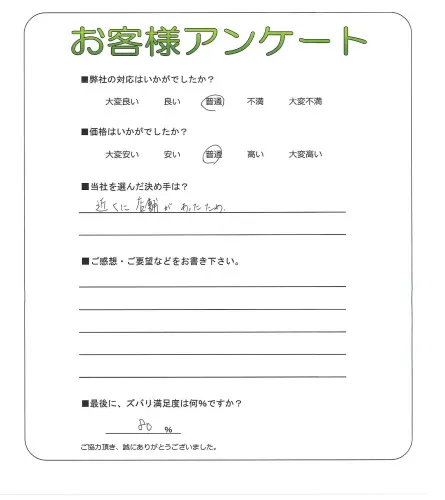 お客様アンケート
■弊社の対応はいかがでしたか？
大変良い 良い 普通 不満 大変不満
■価格はいかがでしたか？
大変安い 安い 普通 高い 大変高い
■当社を選んだ決め手は？
近くに店舗があったため。
■ご感想・ご要望などをお書き下さい。
■最後に、ズバリ満足度は何％ですか？
80 ％
ご協力頂き、誠にありがとうございました。